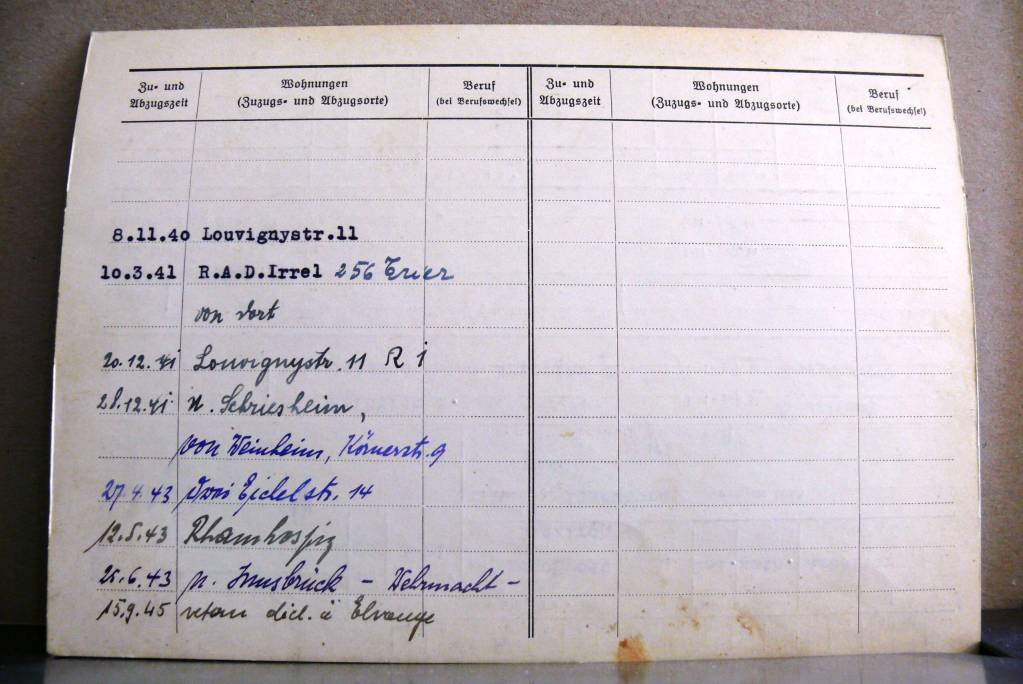 Zu- und Abzugszeit
Wohnungen
(Zuzugs- und Abzugsorte)
Beruf
(bei Berufswechsel)
Zu- und Abzugszeit
Wohnungen
(Zuzugs- und Abzugsorte)
Beruf
(bei Berufswechsel)
8.11.40 Louvignystr.11
10.3.41 R.A.D.Irrel 256 Trier
von dort
20.12.41 Louvignystr. 11 R i
28.12.41 n. Schriesheim,
von Weinheim, Körnerstr. 9
27.4.43 Eichelstr. 14
12.5.43
25.6.43 n. Innsbrück - Wehrmacht -
15.9.45 retour décl. à Elvange